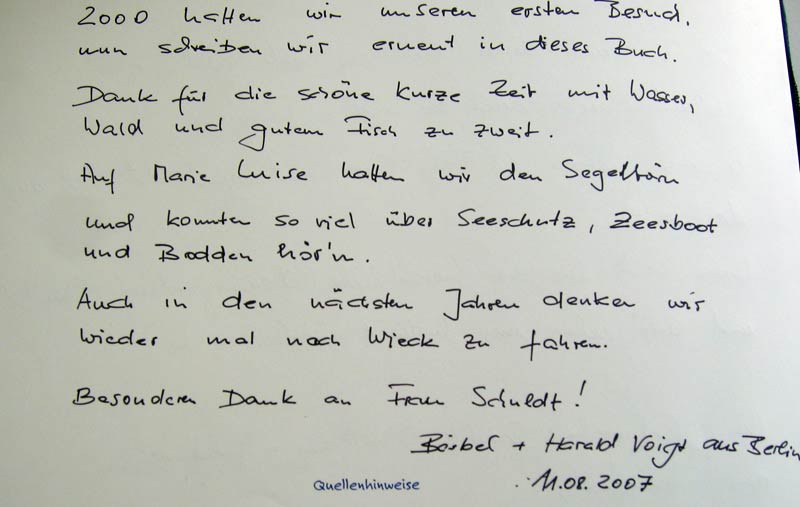 2000 hatten wir unseren ersten Besuch,
nun schreiben wir erneut in dieses Buch.
Dank für die schöne kurze Zeit mit Wasser,
Wald und gutem Fisch zu zweit.
Auf Marie Luise hatten wir den Segeltörn
und konnten so viel über Seeschutz, Zeesboot
und Bodden hör'n.
Auch in den nächsten Jahren denken wir
wieder mal nach Wieck zu fahren.
Besonderen Dank an Frau Schuldt!
Bärbel + Harald Voigt aus Berlin
11.08.2007
Quellenhinweise